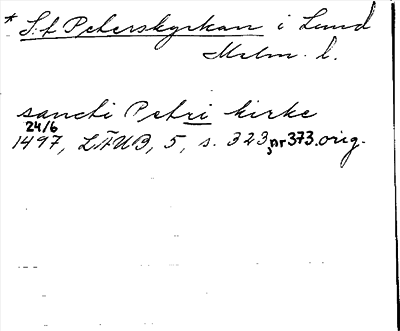 * S:t Peterskyrkan i Lund
Malm. l.
sancti Petri kirke
24/6
1497, LÄUB, 5, s. 323, nr 373. orig.